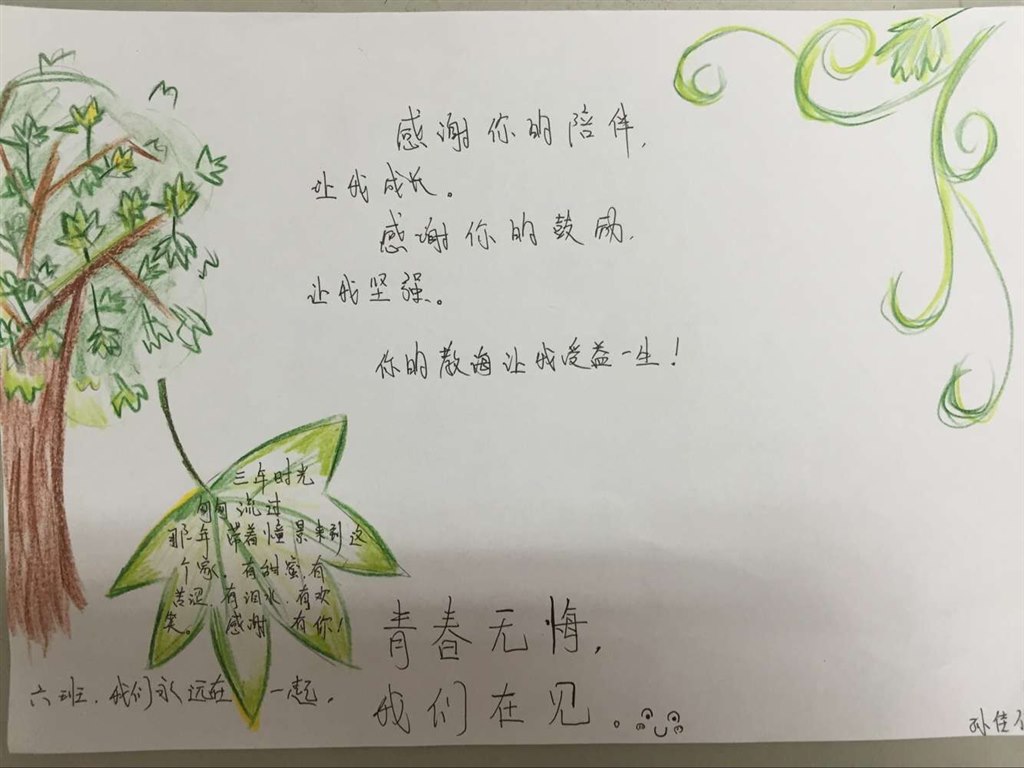 感谢你的陪伴,
让我成长。
感谢你的鼓励,
让我坚强。
你的教海让我受益一生!
三年时光
匆匆流过
那年带着憧景来到这
个家,有甜蜜,有
苦涩,有泪水,有欢
笑。感谢有你!
六班,我们永远在一起,
青春无悔,
我们在见。
孙佳